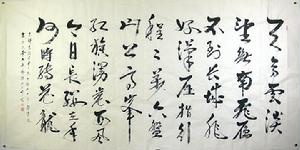 天高雲淡
望斷南飛雁
不到長城非
好漢屈指行
程二萬六盤
山上高峰
紅旗漫卷西風
今日長纓在手
何時縛蒼龍